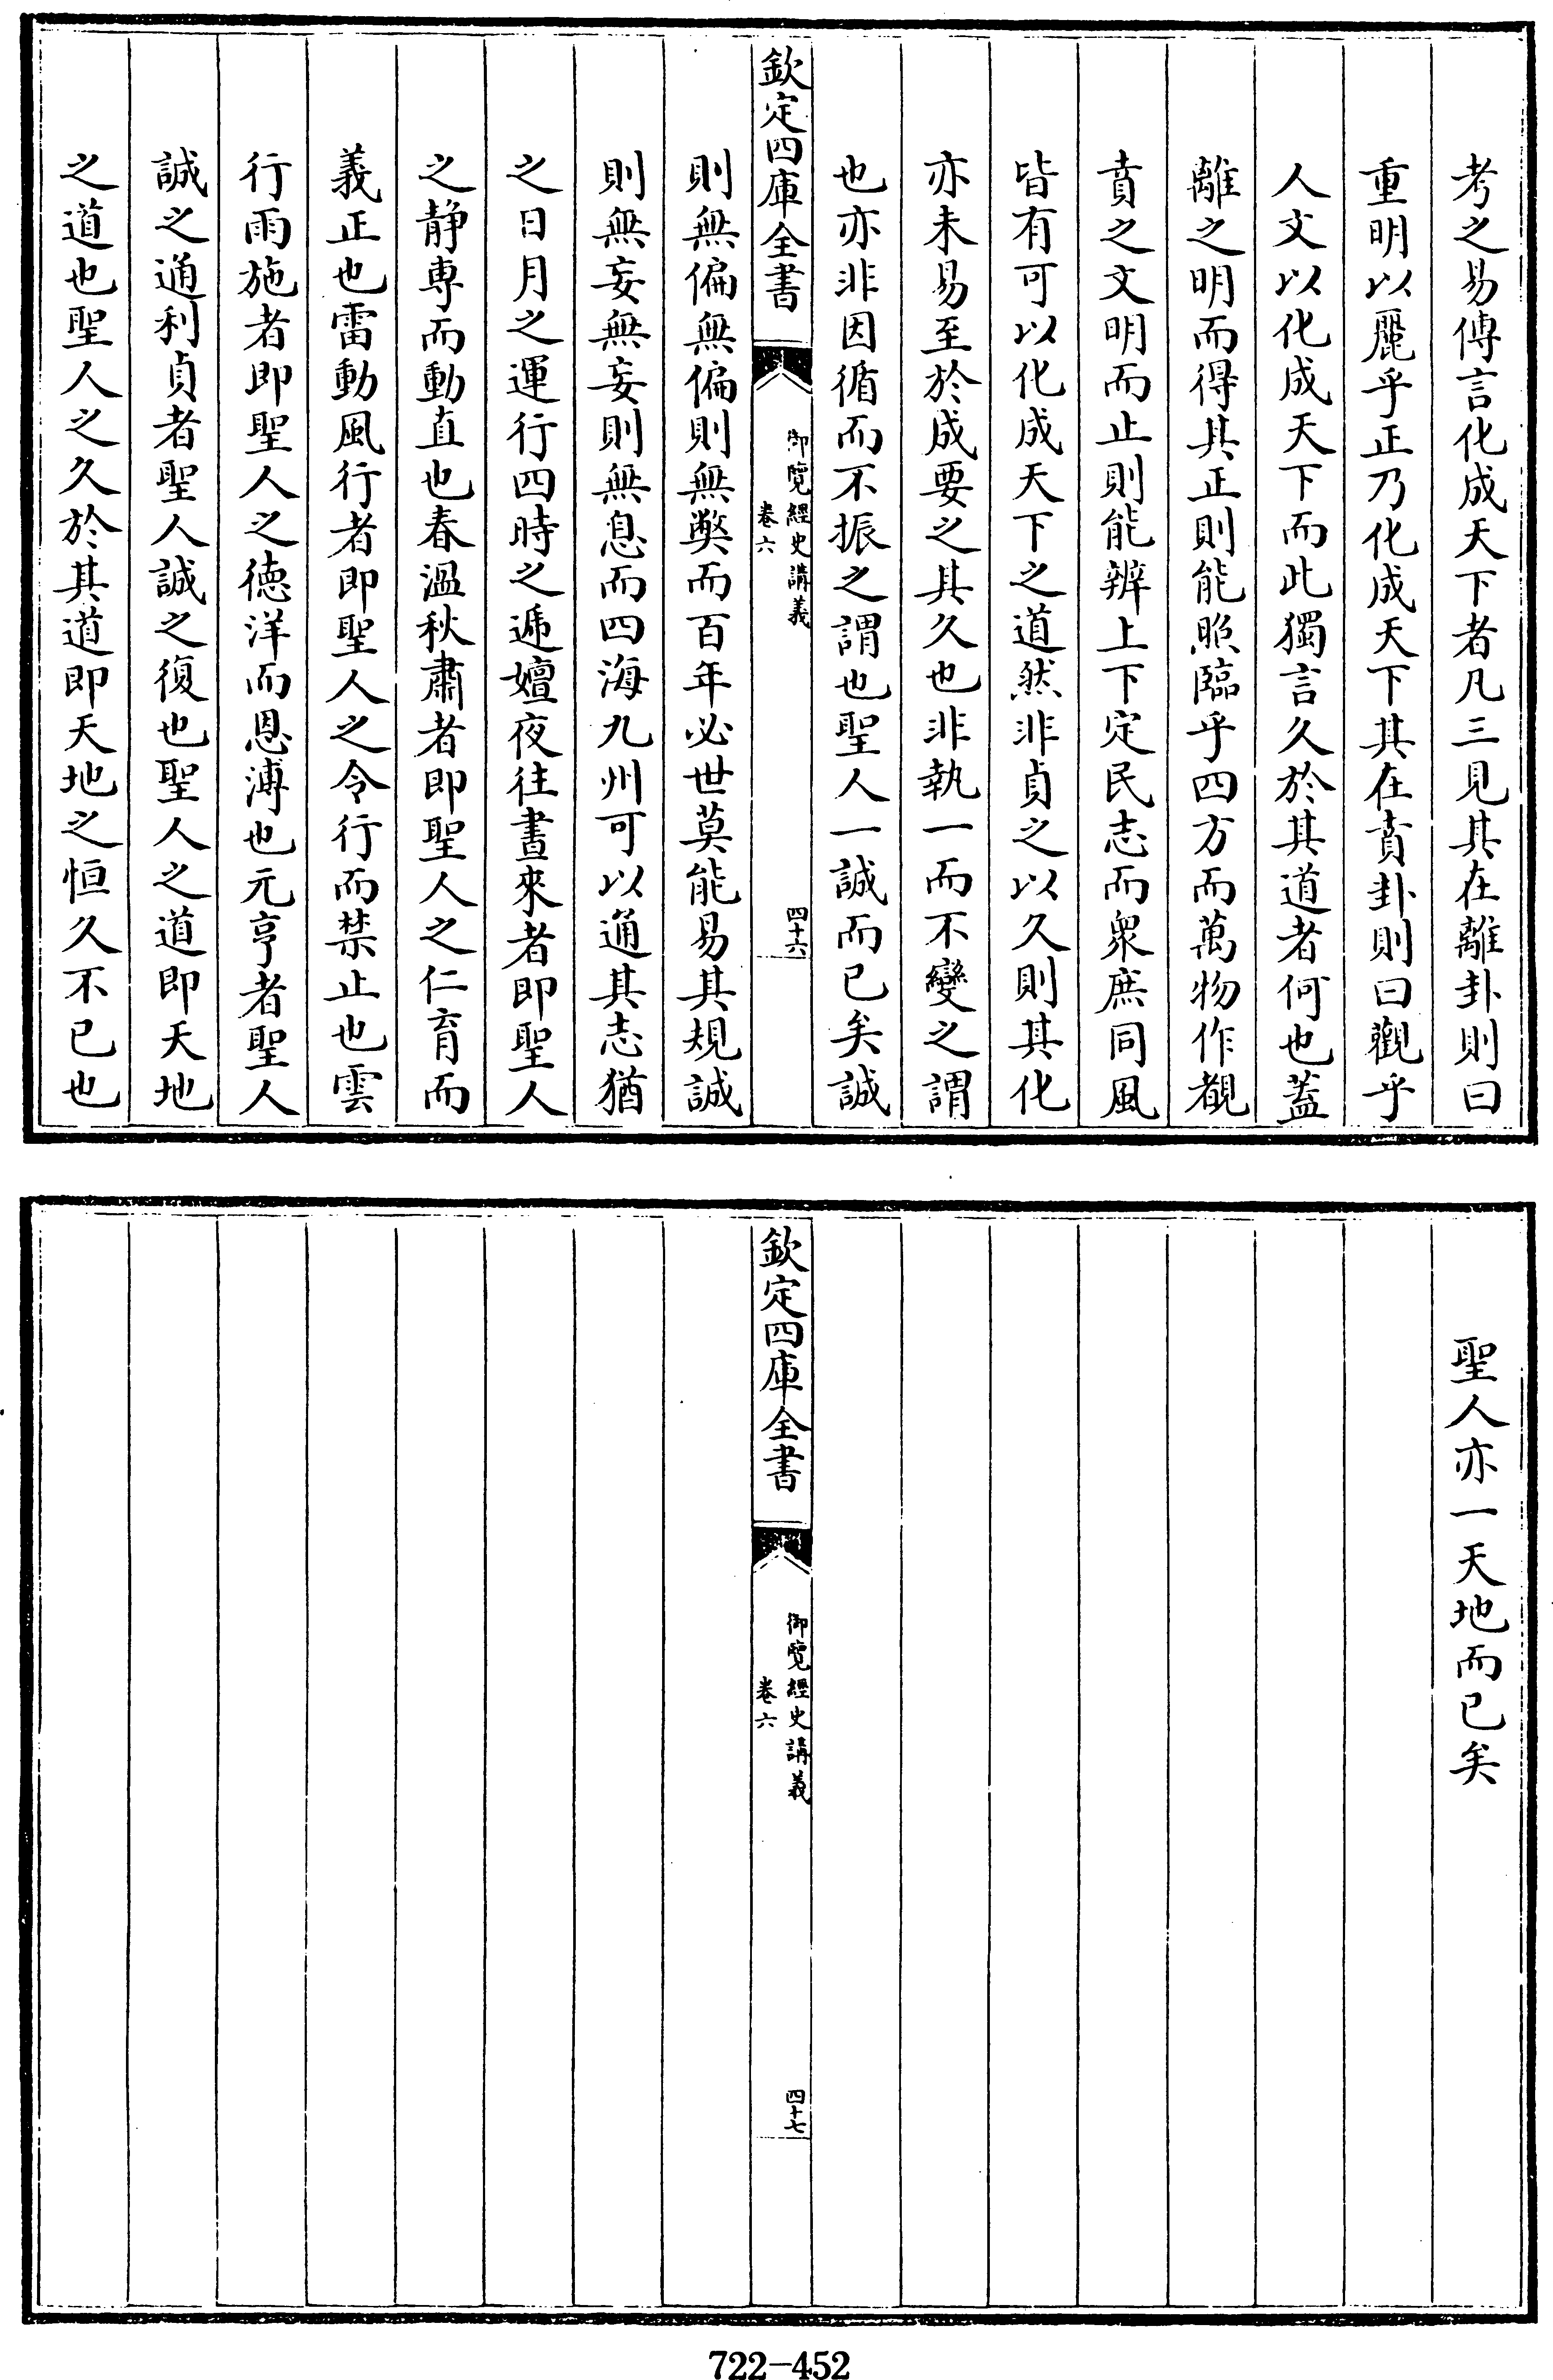 考之易傳言化成天下者凡三見其在離卦則曰
重明以麗乎正乃化成天下其在賁卦則曰觀乎
人文以化成天下而此獨言久於其道者何也蓋
離之明而得其正則能照臨乎四方而萬物作覩
賁之文明而止則能辨上下定民志而衆庶同風
皆有可以化成天下之道然非貞之以久則其化
亦未易至於成要之其久也非執一而不變之謂
也亦非因循而不振之謂也聖人一誠而已矣誠
欽定四庫全書
御覽經史講義
卷六
四十六
則無偏無偏則無弊而百年必世莫能易其規誠
則無妄無妄則無息而四海九州可以通其志猶
之日月之運行四時之遞嬗夜往晝來者即聖人
之静専而動直也春温秋肅者即聖人之仁育而
義正也雷動風行者即聖人之令行而禁止也雲
行雨施者即聖人之德洋而恩溥也元亨者聖人
誠之通利貞者聖人誠之復也聖人之道即天地
之道也聖人之久於其道即天地之恒久不已也
聖人亦一天地而已矣
欽定四庫全書
御覽經史講義
卷六
四十七
722-452